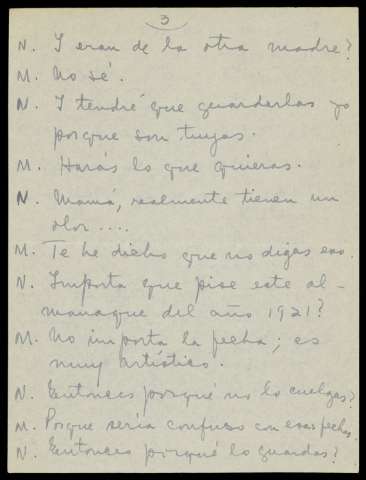 3
N. Y eran de la otra madre?
M. No sé.
N. Y tendré que guardarlas yo
porque son tuyas.
M. Harás lo que quieras.
N. Mamá, realmente tienen un
olor....
M. Te he dicho que no digas eso.
N. Importa que pise este al-
manaque del año 1921?
M. No importa la fecha; es
muy artístico.
N. Entonces porqué no lo cuelgas?
M. Porque sería confuso con esas fechas.
N. Entonces porqué lo guardas?